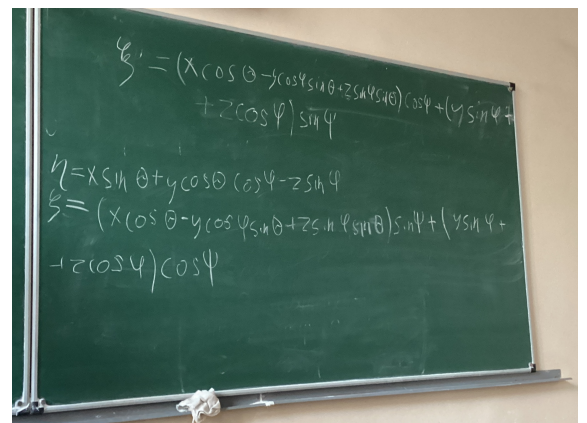 ξ = (x cos θ - y cos φ sin θ + z sin φ sin θ) cos ψ + (y sin φ +
+ z cos φ) sin ψ
η = x sin θ + y cos θ cos φ - z sin φ
ξ = (x cos θ - y cos φ sin θ + z sin φ sin θ) sin ψ + (y sin φ +
+ z cos φ) cos ψ